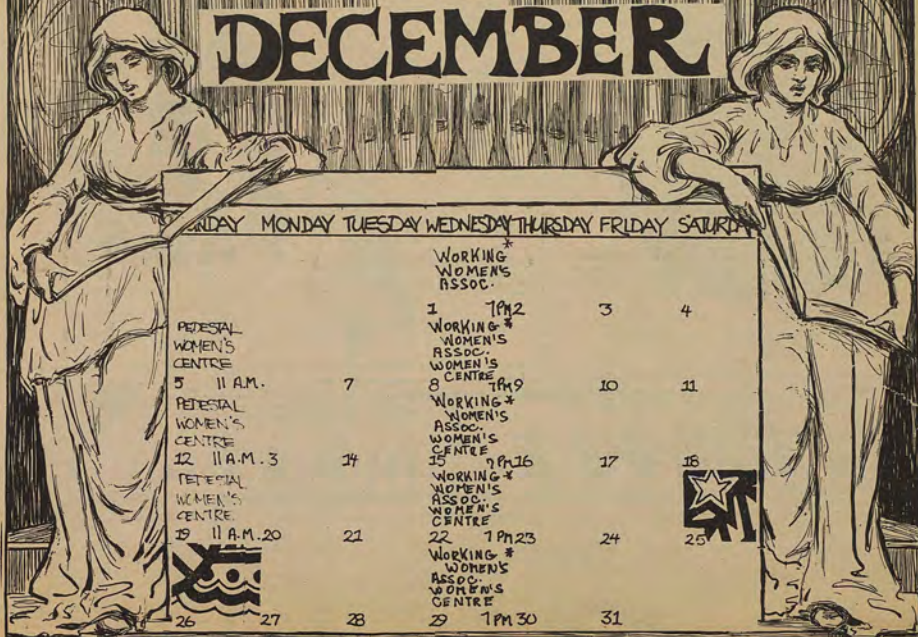 DECEMBER
SUNDAY MONDAY TUESDAY WEDNESDAY THURSDAY FRIDAY SATURDAY
WORKING*
WOMEN'S
ASSOC.
1 7PM 2 3 4
PEDESTAL
WOMEN'S
CENTRE
WORKING*
WOMEN'S
ASSOC.
WOMEN'S
CENTRE
5 11 A.M. 7 8 7PM 9 10 11
PEDESTAL
WOMEN'S
CENTRE
WORKING*
WOMEN'S
ASSOC.
WOMEN'S
CENTRE
12 11 A.M. 3 14 15 7PM 16 17 18
PEDESTAL
WOMEN'S
CENTRE
WORKING*
WOMEN'S
ASSOC.
WOMEN'S
CENTRE
19 11 A.M. 20 21 22 7PM 23 24 25
WORKING*
WOMEN'S
ASSOC.
WOMEN'S
CENTRE
26 27 28 29 7PM 30 31